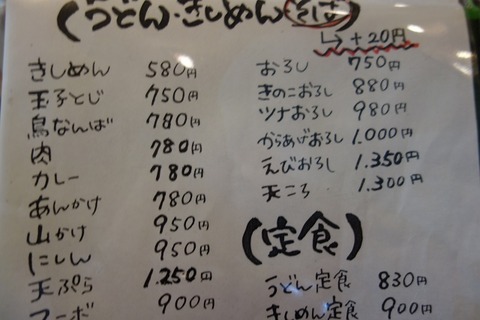 (うどん・きしめん そば)
↳+20円
きしめん 580円
玉子とじ 750円
鳥なんば 780円
肉 780円
カレー 780円
あんかけ 780円
山かけ 950円
にしん 950円
天ぷら 1.250円
マーボ 900円
おろし 750円
きのこおろし 880円
ツナおろし 980円
からあげおろし 1.000円
えびおろし 1.350円
天ころ 1.300円
(定食)
うどん定食 830円
きしめん定食 900円